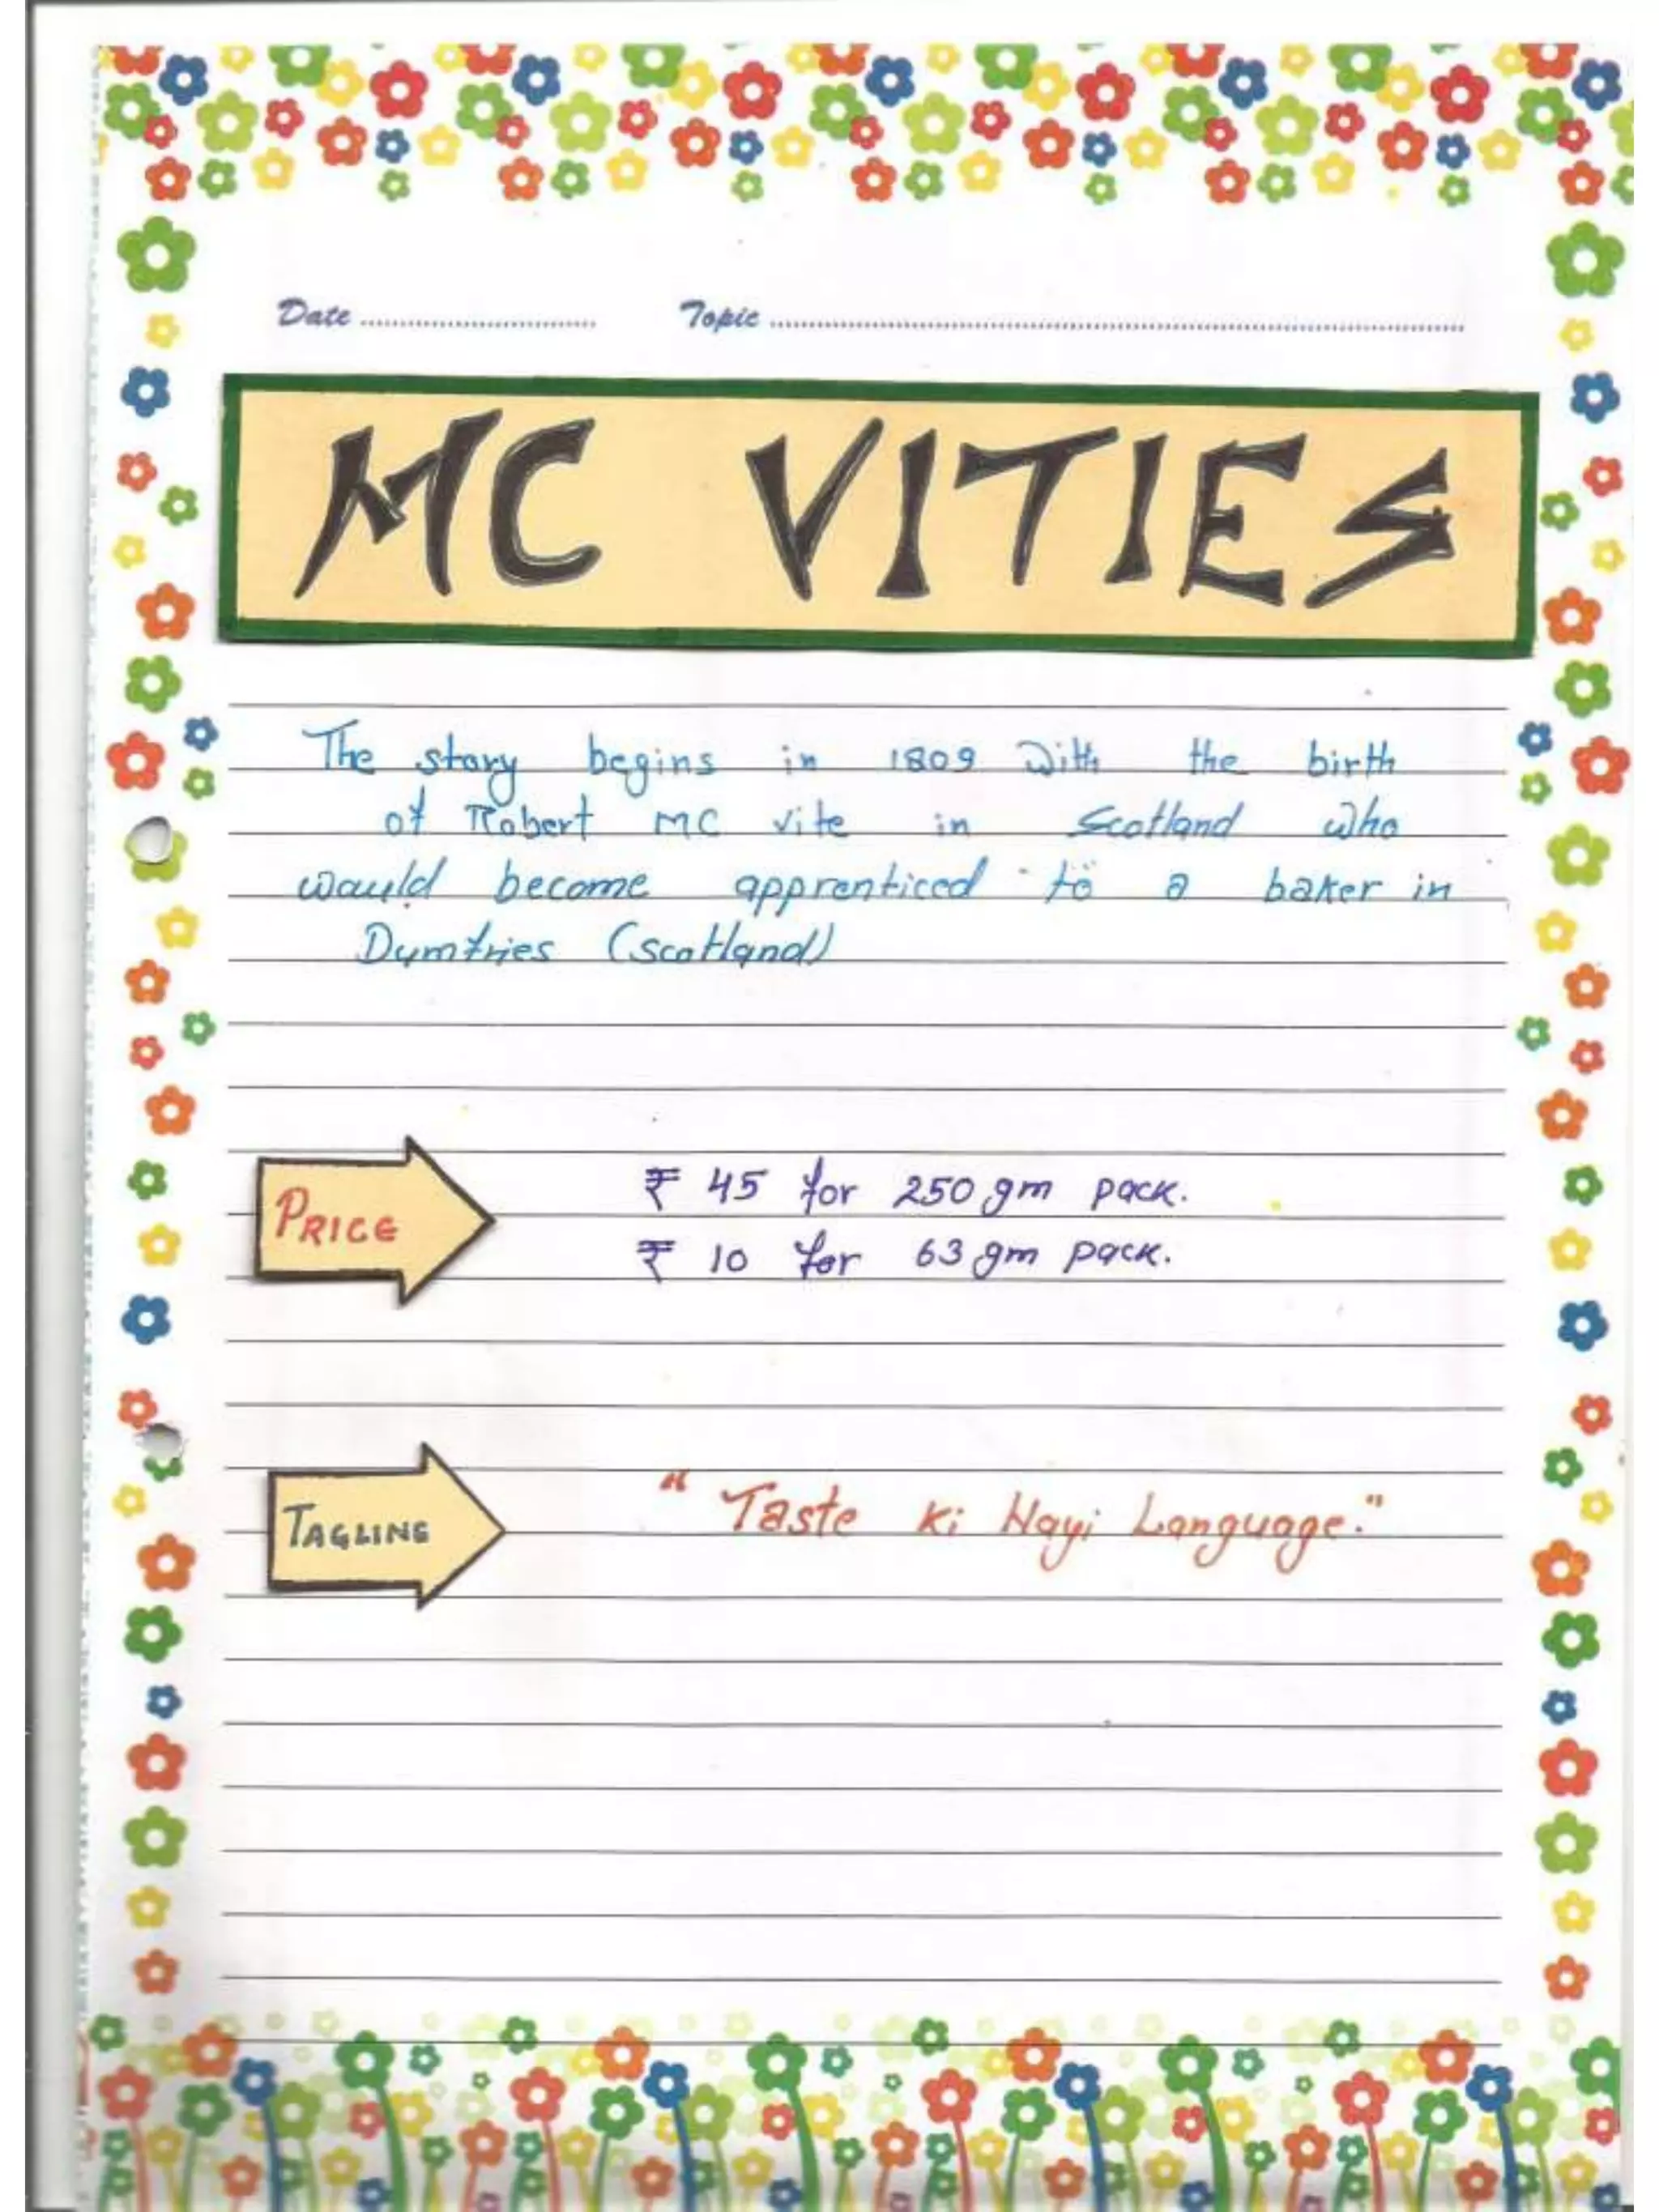 Date ........................ Topic ........................
MC VITIES
The story begins in 1809 with the birth
of Robert MC vite in Scotland who
would become apprenticed to a baker in
Dumfries (scotland)
PRICE
₹ 45 for 250 gm pack.
₹ 10 for 63 gm pack.
TAGLINE
" Taste Ki Nayi Language."